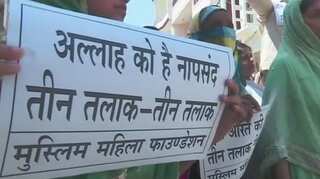 अल्लाह को है नापसंद
तीन तलाक-तीन तलाक
मुस्लिम महिला फाउण्डेशन
औरत की
तीन तलाक